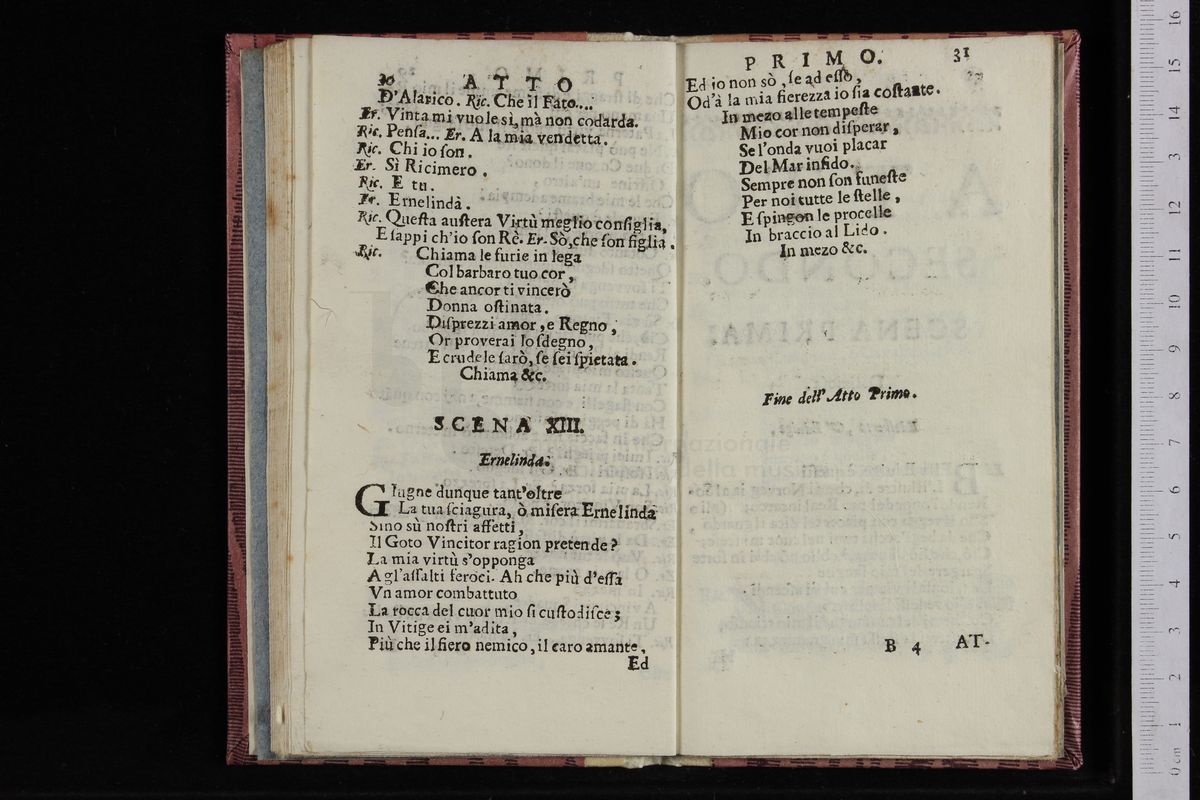 30 ATTO
D'Alarico. Ric. Che il Fato....
Er. Vinta mi vuole sì, mà non codarda.
Ric. Penſa... Er. A la mia vendetta.
Ric. Chi io ſon.
Er. Sì Ricimero.
Ric. E tu.
Er. Ernelinda.
Ric. Queſta auſtera Virtù meglio conſiglia,
E ſappi ch'io ſon Rè. Er. Sò, che ſon figlia.
Ric. Chiama le furie in lega
Col barbaro tuo cor,
Che ancor ti vincerò
Donna oſtinata.
Diſprezzi amor, e Regno,
Or proverai lo ſdegno,
E crudele ſarò, ſe ſei ſpietata.
Chiama &c.
SCENA XIII.
Ernelinda.
GIugne dunque tant'oltre
La tua ſciagura, ò miſera Ernelinda
Sino sù noſtri affetti,
Il Goto Vincitor ragion pretende?
La mia virtù s'opponga
A gl'aſſalti feroci. Ah che più d'eſſa
Vn amor combattuto
La rocca del cuor mio ſi cuſtodiſce;
In Vitige ei m'adita,
Più che il fiero nemico, il caro amante,
Ed
PRIMO. 31
Ed io non sò, ſe ad eſſo,
Od'à la mia fierezza io ſia coſtante.
In mezo alle tempeſte
Mio cor non diſperar,
Se l'onda vuoi placar
Del Mar infido.
Sempre non ſon funeſte
Per noi tutte le ſtelle,
E ſpingon le procelle
In braccio al Lido.
In mezo &c.
Fine dell' Atto Primo.
B 4 AT-